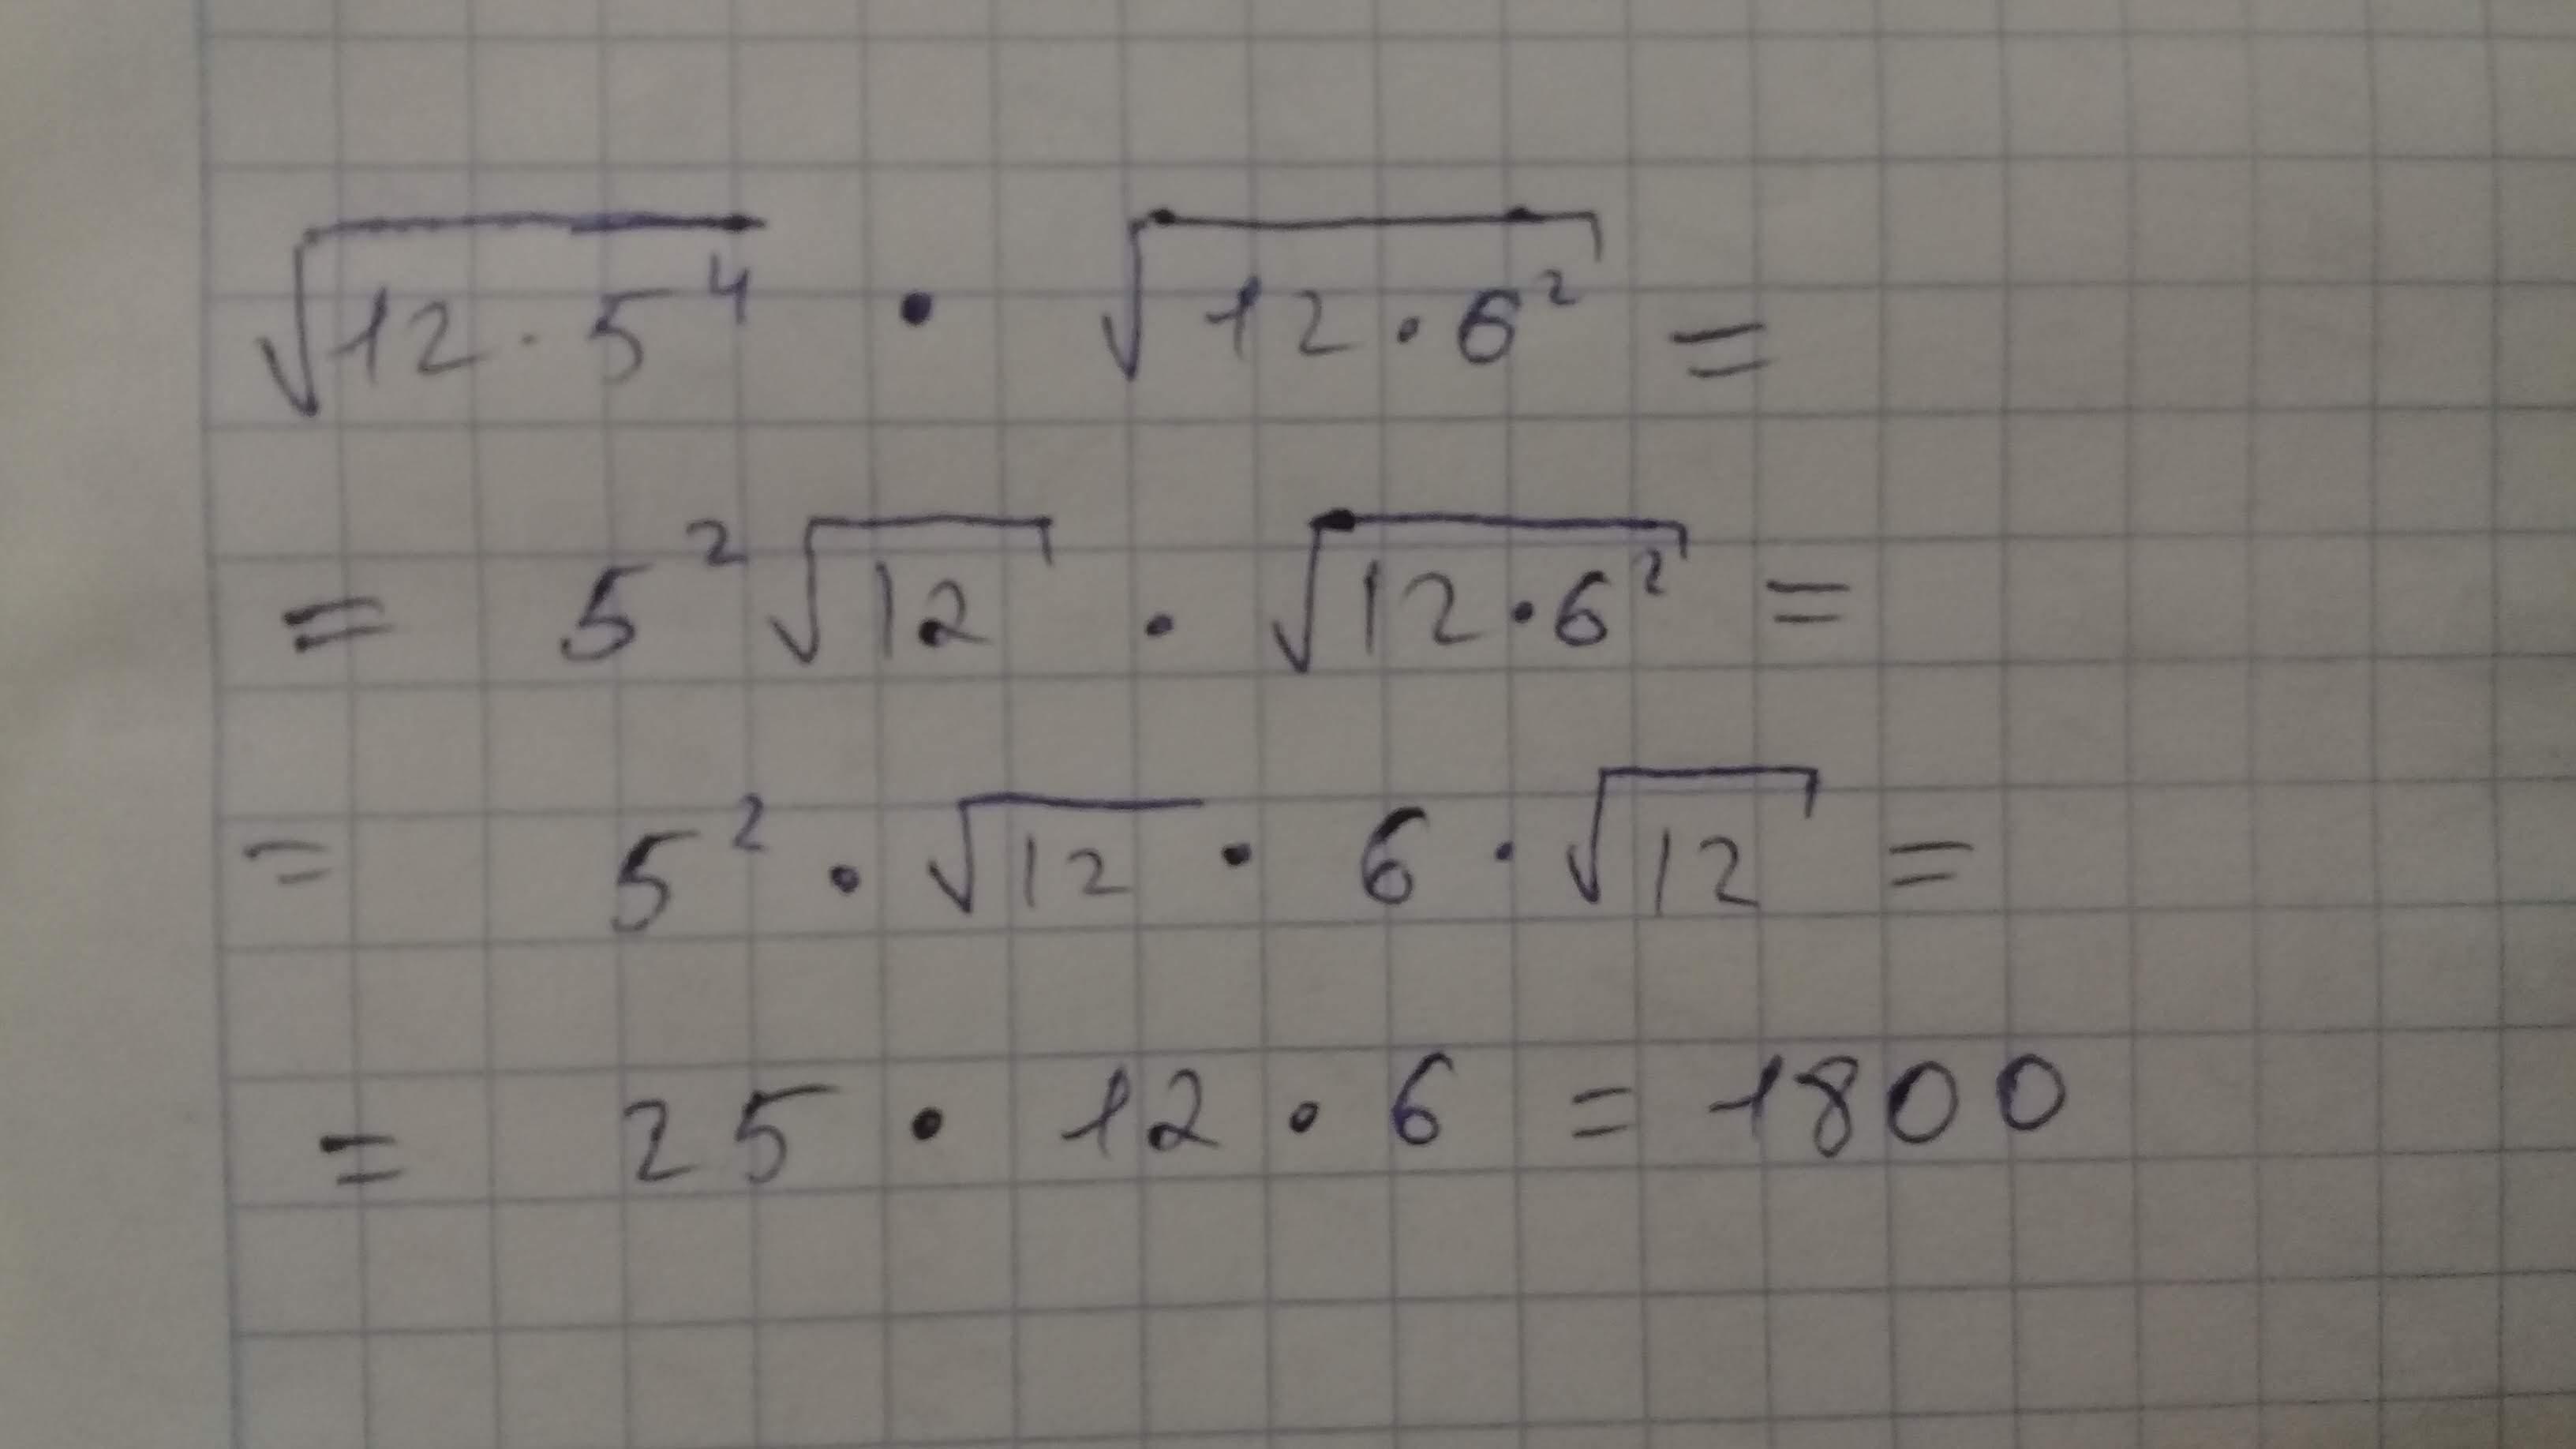 √12·5⁴ · √12·6² =
= 5²√12 · √12·6² =
= 5² · √12 · 6 · √12 =
= 25 · 12 · 6 = 1800